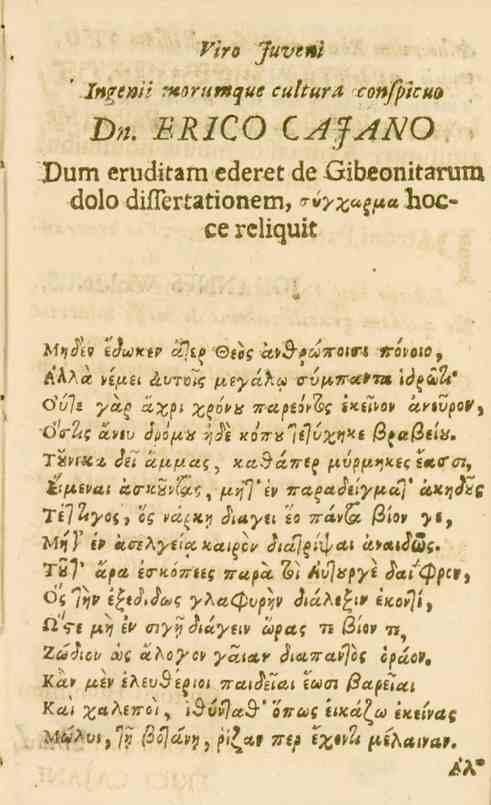 Viro Juveni
Ingenii morumque cultura conspicuo
Dn. ERICO CAJANO
Dum eruditam ederet de Gibeonitarum
dolo dissertationem, σύγχαρμα hoc-
ce reliquit
Μηδὲν ἔδωκεν ἄτερ Θεὸς ἀνθρώποισι πόνοιο,
Ἀλλὰ νέμει ἀυτοῖς μεγάλῳ σύμπαντα ἱδρῶτι·
Οὔτε γὰρ ἄχρι χρόνȣ παρεόντος ἐκεῖνον ἀνεῦρον,
Ὅστις ἄνευ δρόμȣ ἠδὲ κόπȣ τετύχηκε βραβείȣ.
Τȣ́νεκα δεῖ ἄμμας, καθάπερ μύρμηκες ἔασσι,
Ἔιμεναι ἀσκȣ͂ντας, μήτ' ἐν παραδείγματ' ἀκηδȣ͂ς
Τέτιγος, ὃς νάρκῃ διαγει ἑο πάντα βίον γε,
Μήτ' ἐν ἀσελγείᾳ καιρὸν διατρίψαι ἀναιδῶς.
Τȣ͂τ' ἄρα ἐσκόπεες παρὰ τὶ Αυτȣργὲ δαΐφρεν,
Ὃς τὴν ἐξεδίδως γλαφυρὴν διάλεξιν ἑκοντί,
Ὥστε μὴ ἐν σιγῇ διάγειν ὥρας τε βίον τε,
Ζώδιον ὡς ἄλογον γᾶιαν διαπαντὸς ὁράον.
Κἂν μὲν ἐλευθέριοι παιδεῖαι ἔωσι βαρεῖαι
Καὶ χαλεποὶ, ἰθύνταθ' ὅπως ἐικάζω ἐκείνας
Μώλυι, τῇ βοτάνῃ, ῥίζαν περ ἔχοντι μέλαιναν.
Ἀλ-